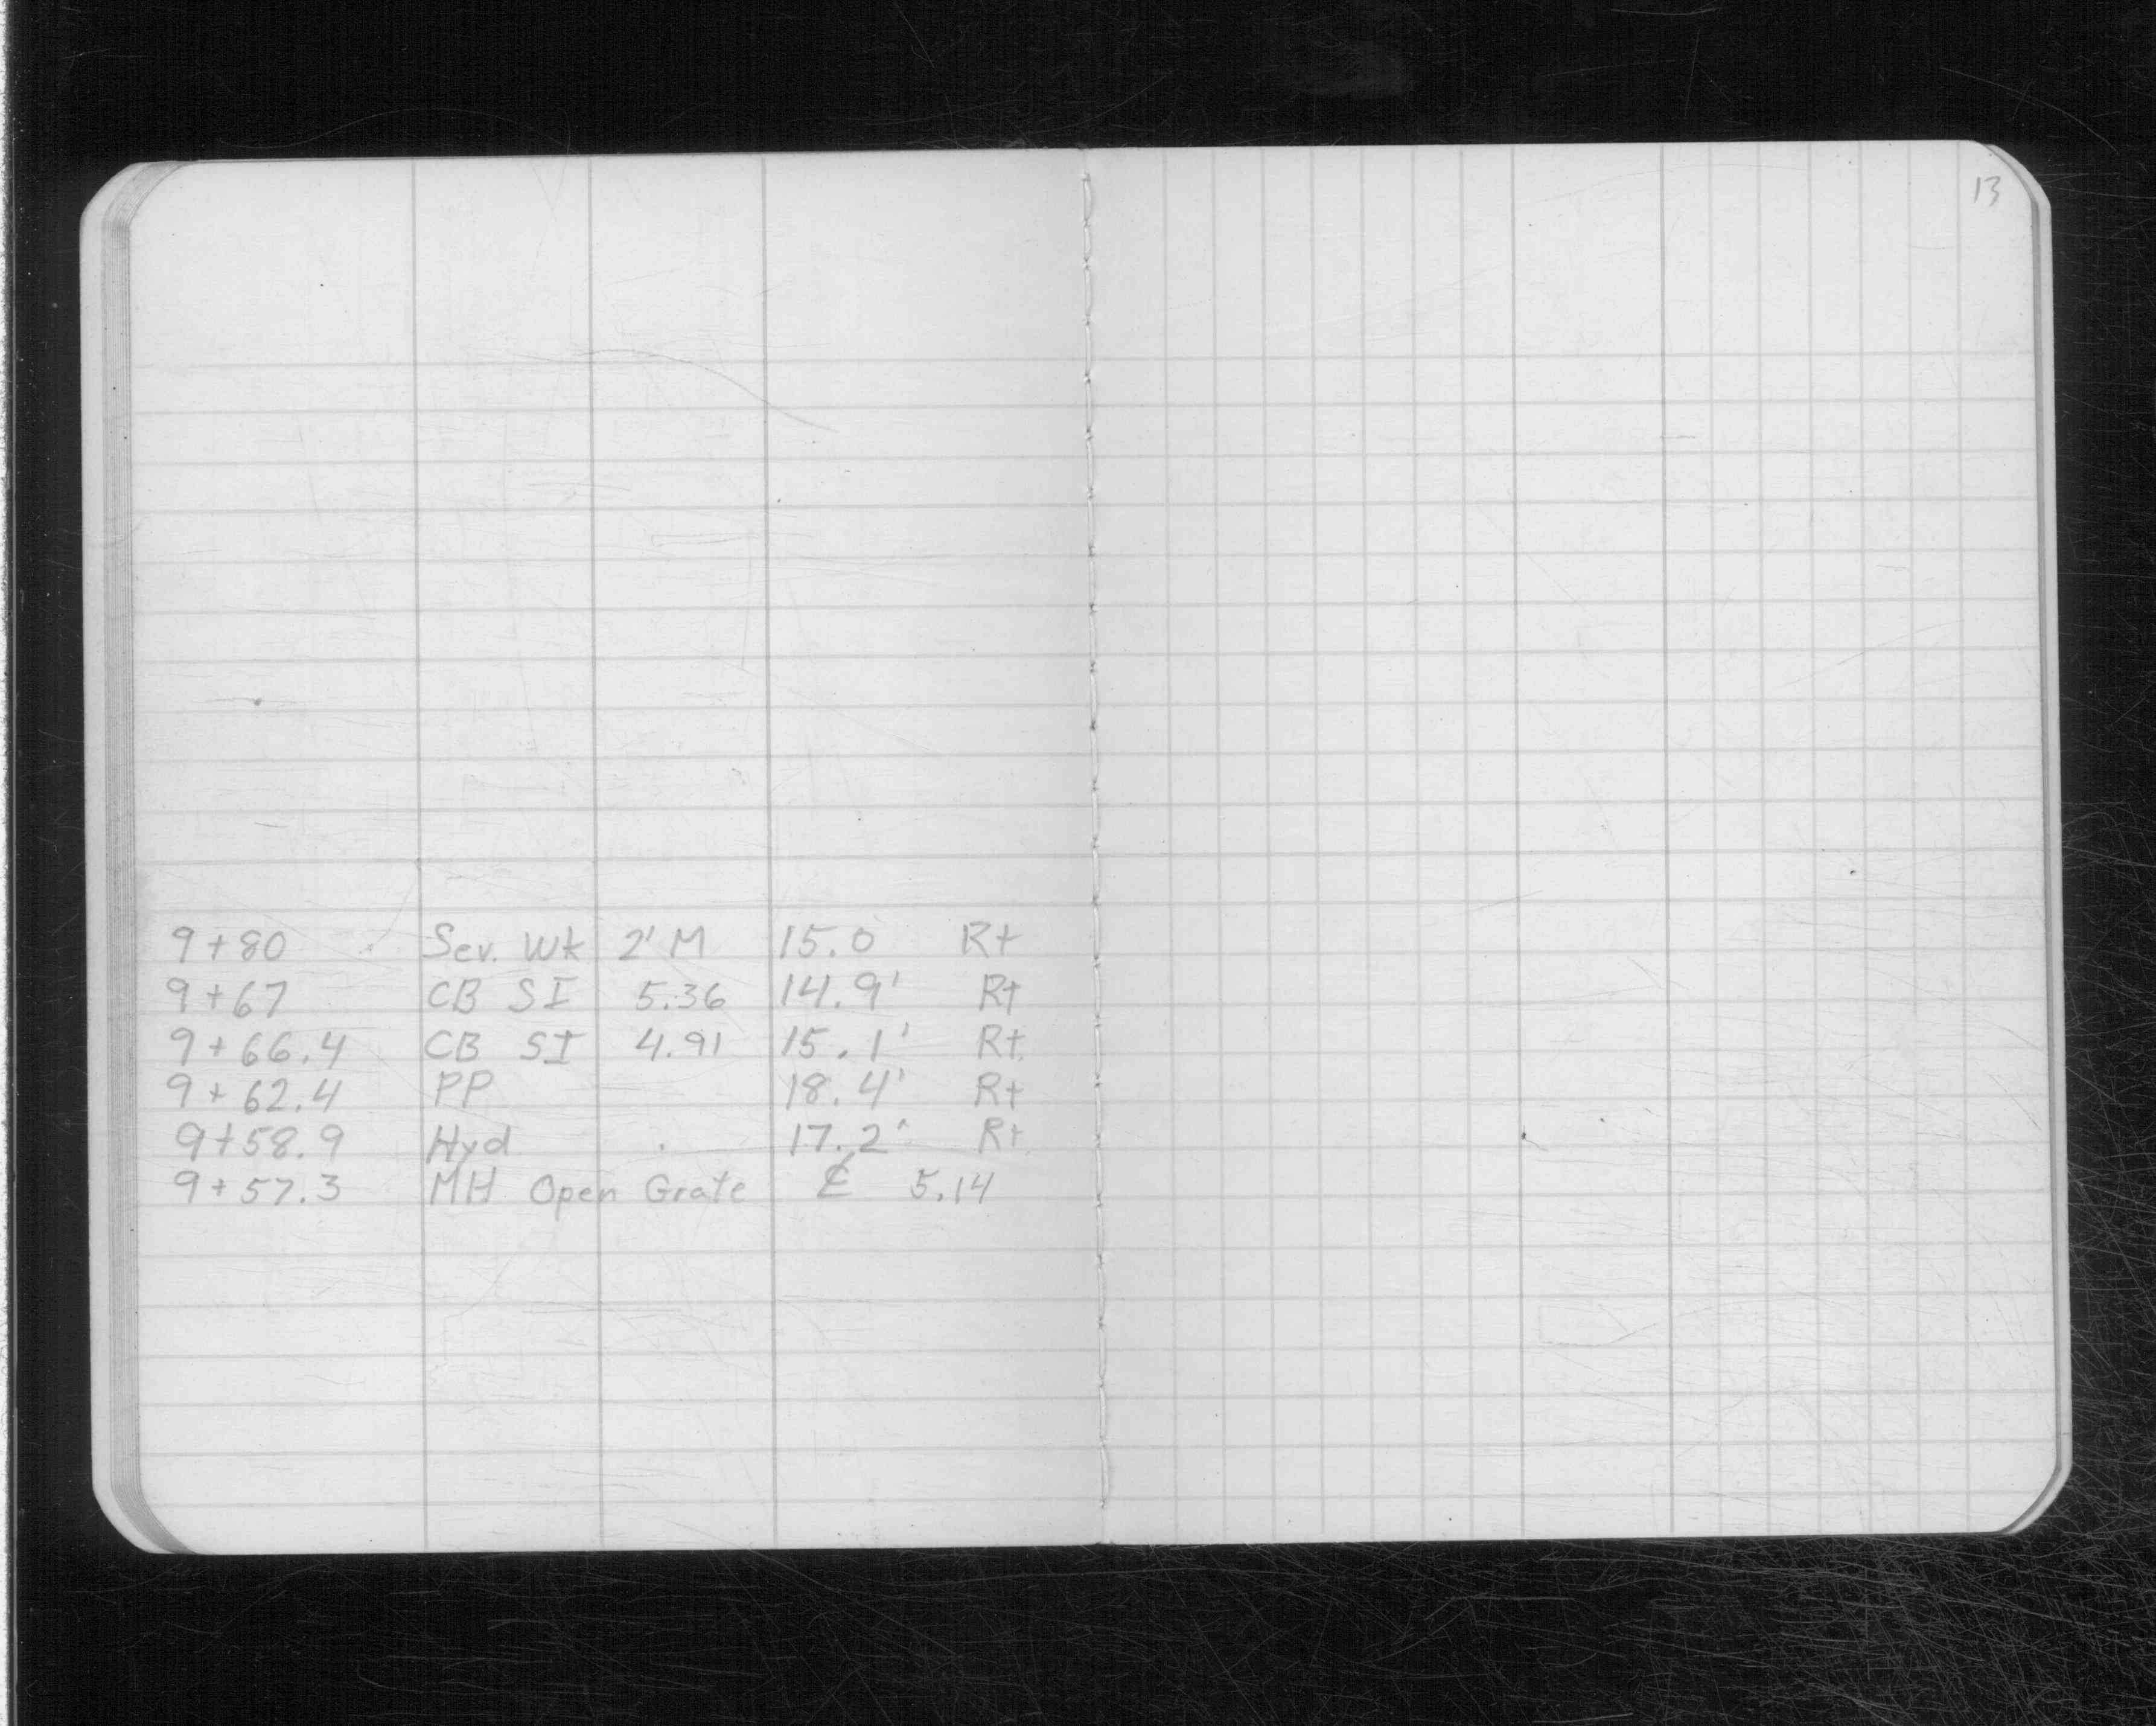 13
9+80 Sev. Wk 2' M 15.0 Rt
9+67 CB SI 5.36 14.9' Rt
9+66.4 CB SI 4.91 15.1' Rt
9+62.4 PP 18.4' Rt
9+58.9 Hyd 17.2' Rt
9+57.3 MH Open Grate ₵ 5.14